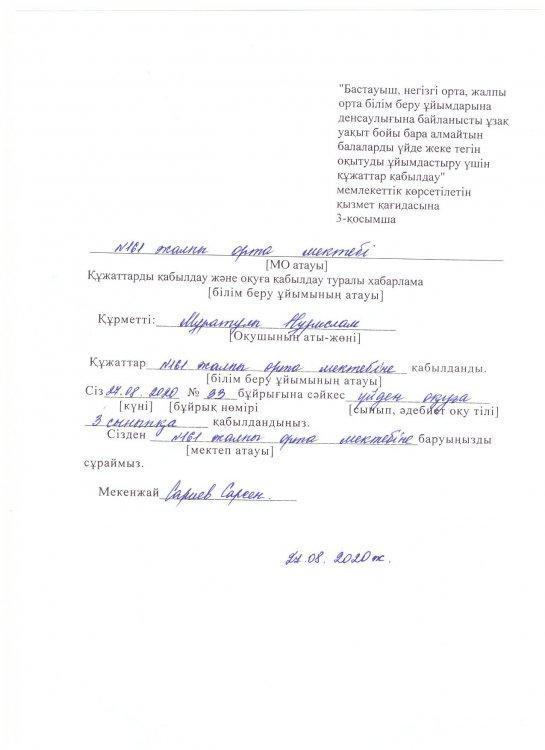 "Бастауыш, негізгі орта, жалпы
орта білім беру ұйымдарына
денсаулығына байланысты ұзақ
уақыт бойы бара алмайтын
балаларды үйде жеке тегін
оқытуды ұйымдастыру үшін
құжаттар қабылдау"
мемлекеттік көрсетілетін
қызмет қағидасына
3-қосымша
№161 жалпы орта мектебі
[МО атауы]
Құжаттарды қабылдау және оқуға қабылдау туралы хабарлама
[білім беру ұйымының атауы]
Құрметті: Мұратұлы Нурислам
[Оқушының аты-жөні]
Құжаттар №161 жалпы орта мектебіне қабылданды.
[білім беру ұйымының атауы]
Сіз 27.08.2020 № 33 бұйрығына сәйкес үйден оқуға
[күні] [бұйрық нөмірі [сынып, әдебиет оқу тілі]
3 сыныпқа қабылдандыңыз.
Сізден №161 жалпы орта мектебіне баруыңызды
[мектеп атауы]
сұраймыз.
Мекенжай Сариев Сарсен.
27.08. 2020ж.